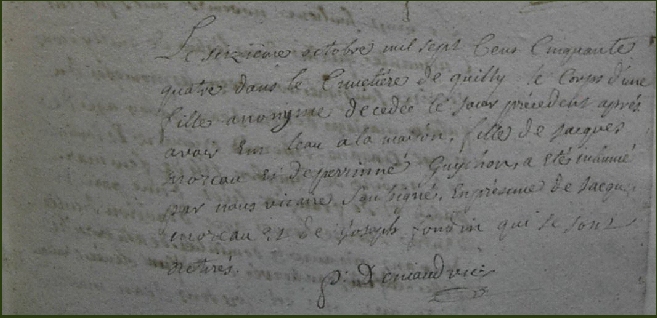 Le seizieme octobre mil sept Cens Cinquante
quatre dans le Cimetiére de quilly le Corps d'une
fille anonyme decedée le jour précedent aprés
avoir eu leau a la maison, fille de jacques
moreau et de perrinne Guychon, a eté inhumé
par nous vicaire Soussigné, En présence de jacque
moreau et de joseph qui se sont
retirés
vic